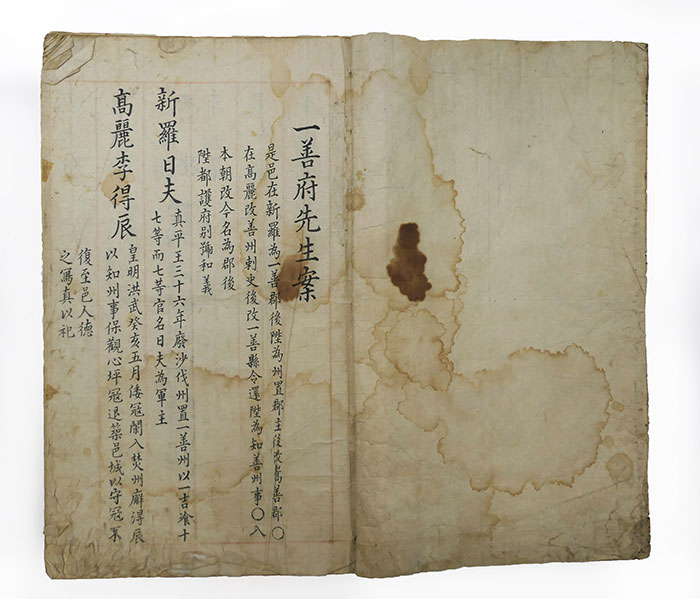 一善府先生案
是邑在新羅為一善郡後陞為州置郡主後改舊善郡○
在高麗改善州刺史後改一善縣令還陞為知善州事○入
本朝改今名為郡後
陞都護府別號和義
新羅日夫
真平王三十六年廢沙伐州置一善州以一吉飡十
七等而七等官名日夫為軍主
高麗李得辰
皇明洪武癸亥五月倭冦闌入焚州廨得辰
以知州事保觀心坪冦退築邑城以守冦不
復至邑人德
之寫真以祀